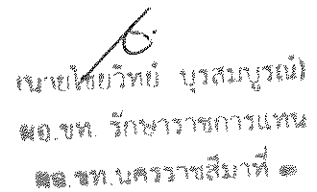 (นายไชยวิทย์ บุรสมบูรณ์)
ผอ.ขท. รักษาราชการแทน
ผอ.ขท.นครราชสีมาที่ ๑